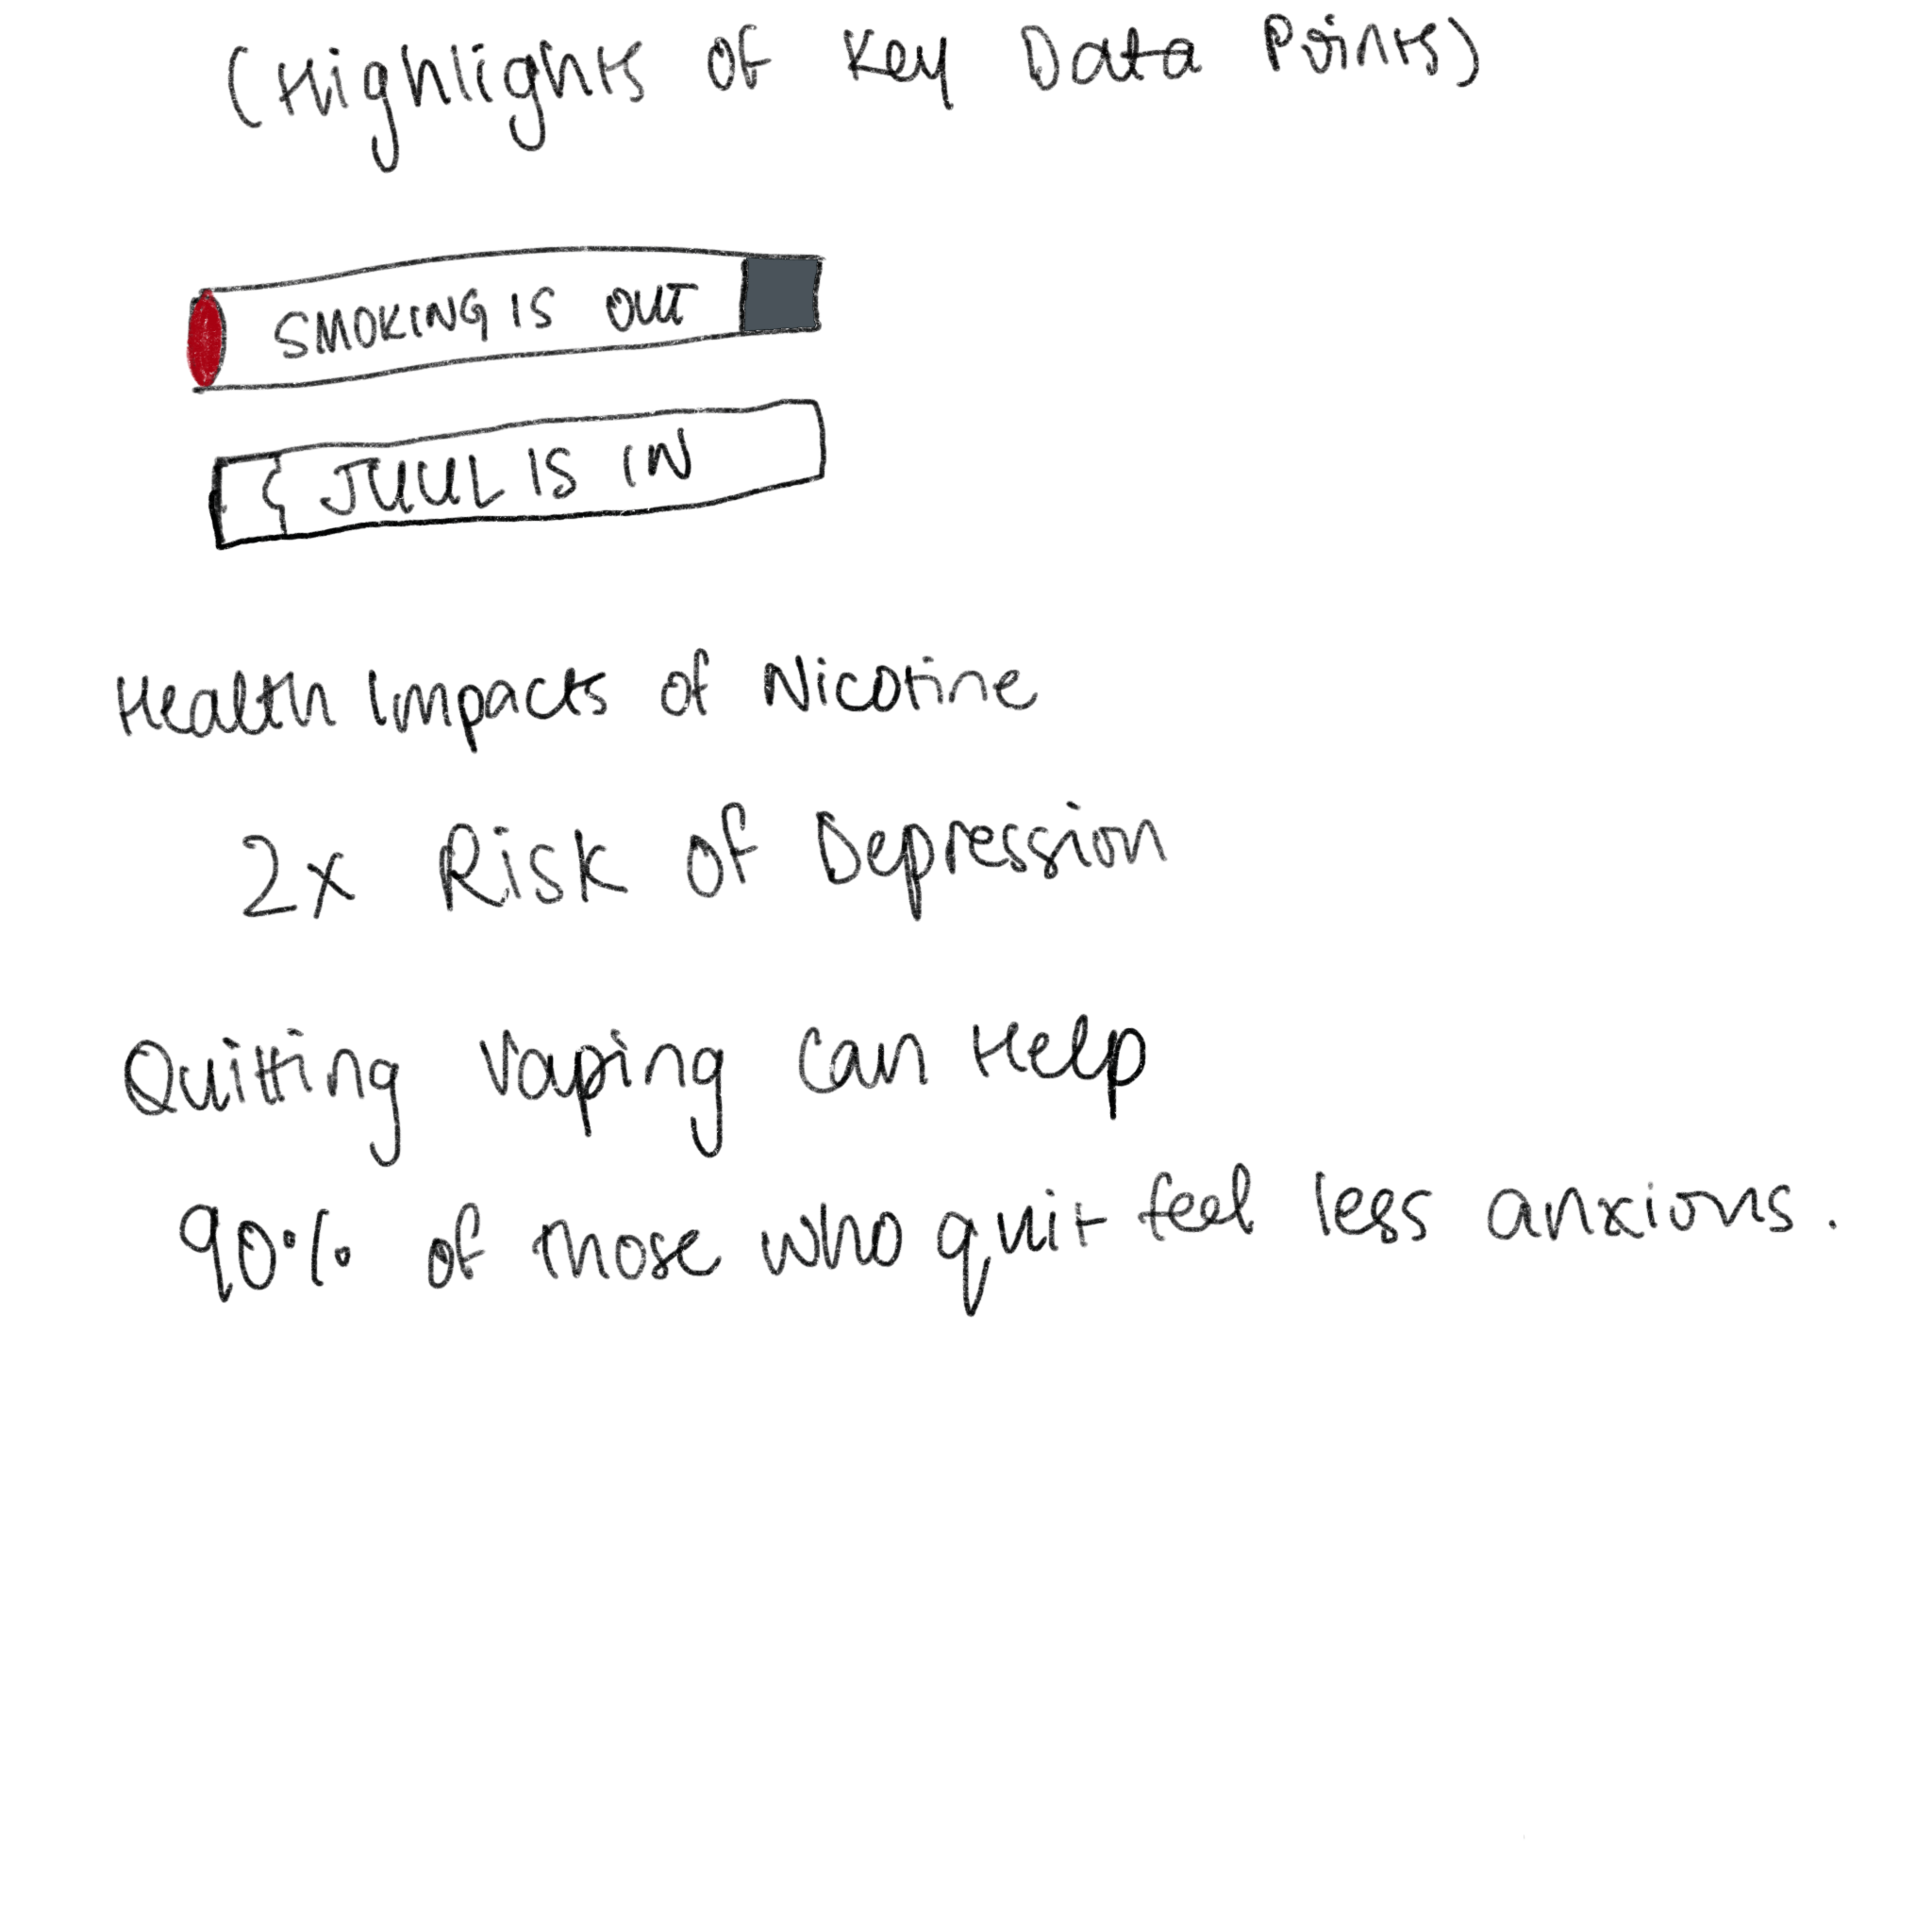 (Highlights of Key Data Points)
SMOKING IS OUT
JUUL IS IN
Health Impacts of Nicotine
2x Risk of Depression
Quitting Vaping Can Help
90% of those who quit feel less anxious.